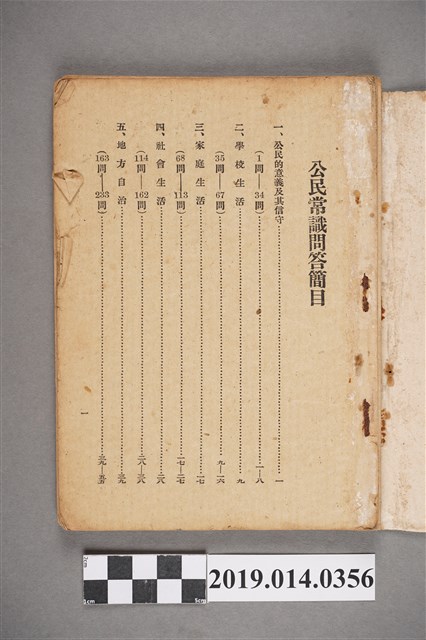 公民常識問答簡目
一、公民的意義及其信守……一
(1問——34問)……一—八
二、學校生活……九
(35問——67問)……九—一六
三、家庭生活……一七
(68問——113問)……一七—二七
四、社會生活……二八
(114問——162問)……二八—三八
五、地方自治……三九
(163問——233問)……三九—五五
一
1cm
5cm
2019.014.0356